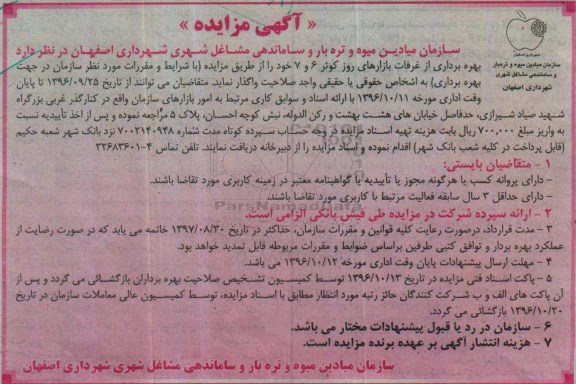 « آگهی مزایده »
سازمان میادین میوه و تره بار و ساماندهی مشاغل شهری شهرداری اصفهان در نظر دارد
سازمان میادین میوه و تره‌بار
و ساماندهی مشاغل شهری
شهرداری اصفهان
بهره برداری از غرفات بازارهای روز کوثر ۶ و ۷ خود را از طریق مزایده (با شرایط و مقررات مورد نظر سازمان در جهت
بهره برداری) به اشخاص حقوقی یا حقیقی واجد صلاحیت واگذار نماید. متقاضیان می توانند از تاریخ ۱۳۹۶/۰۹/۲۵ تا پایان
وقت اداری مورخه ۱۳۹۶/۱۰/۱۱ با ارائه اسناد و سوابق کاری مرتبط به امور بازارهای سازمان واقع در کنارگذر غربی بزرگراه
شهید صیاد شیرازی، حدفاصل خیابان های هشت بهشت و رکن الدوله، نبش کوچه احسان، پلاک ۵ مراجعه نموده و پس از اخذ تأییدیه نسبت
به واریز مبلغ ۷۰۰,۰۰۰ ریال بابت هزینه تهیه اسناد مزایده در وجه حساب سپرده کوتاه مدت شماره ۷۰۰۲۱۴۰۹۴۸ نزد بانک شهر شعبه حکیم
(قابل پرداخت در کلیه شعب بانک شهر) اقدام نموده و اسناد مزایده را از دبیرخانه دریافت نمایند. تلفن تماس ۴-۳۲۶۸۳۶۰۱
۱ - متقاضیان بایستی:
- دارای پروانه کسب یا هرگونه مجوز یا تأییدیه یا گواهینامه معتبر در زمینه کاربری مورد تقاضا باشند.
- دارای حداقل ۳ سال سابقه فعالیت مرتبط با کاربری مورد تقاضا باشند.
۲ - ارائه سپرده شرکت در مزایده طی فیش بانکی الزامی است.
۳ - مدت قرارداد، درصورت رعایت کلیه قوانین و مقررات سازمان، حداکثر در تاریخ ۱۳۹۷/۰۸/۳۰ خاتمه می یابد که در صورت رضایت از
عملکرد بهره بردار و توافق کتبی طرفین براساس ضوابط و مقررات مربوطه قابل تمدید خواهد بود.
۴ - مهلت ارسال پیشنهادات پایان وقت اداری مورخه ۱۳۹۶/۱۰/۱۲ می باشد.
۵ - پاکت اسناد فنی مزایده در تاریخ ۱۳۹۶/۱۰/۱۳ توسط کمیسیون تشخیص صلاحیت بهره برداران بازگشائی می گردد و پس از
آن پاکت های الف و ب شرکت کنندگان حائز رتبه مورد انتظار مطابق با اسناد مزایده، توسط کمیسیون عالی معاملات سازمان در تاریخ
۱۳۹۶/۱۰/۲۰ بازگشائی می گردد.
۶ - سازمان در رد یا قبول پیشنهادات مختار می باشد.
۷ - هزینه انتشار آگهی بر عهده برنده مزایده است.
سازمان میادین میوه و تره بار و ساماندهی مشاغل شهری شهرداری اصفهان